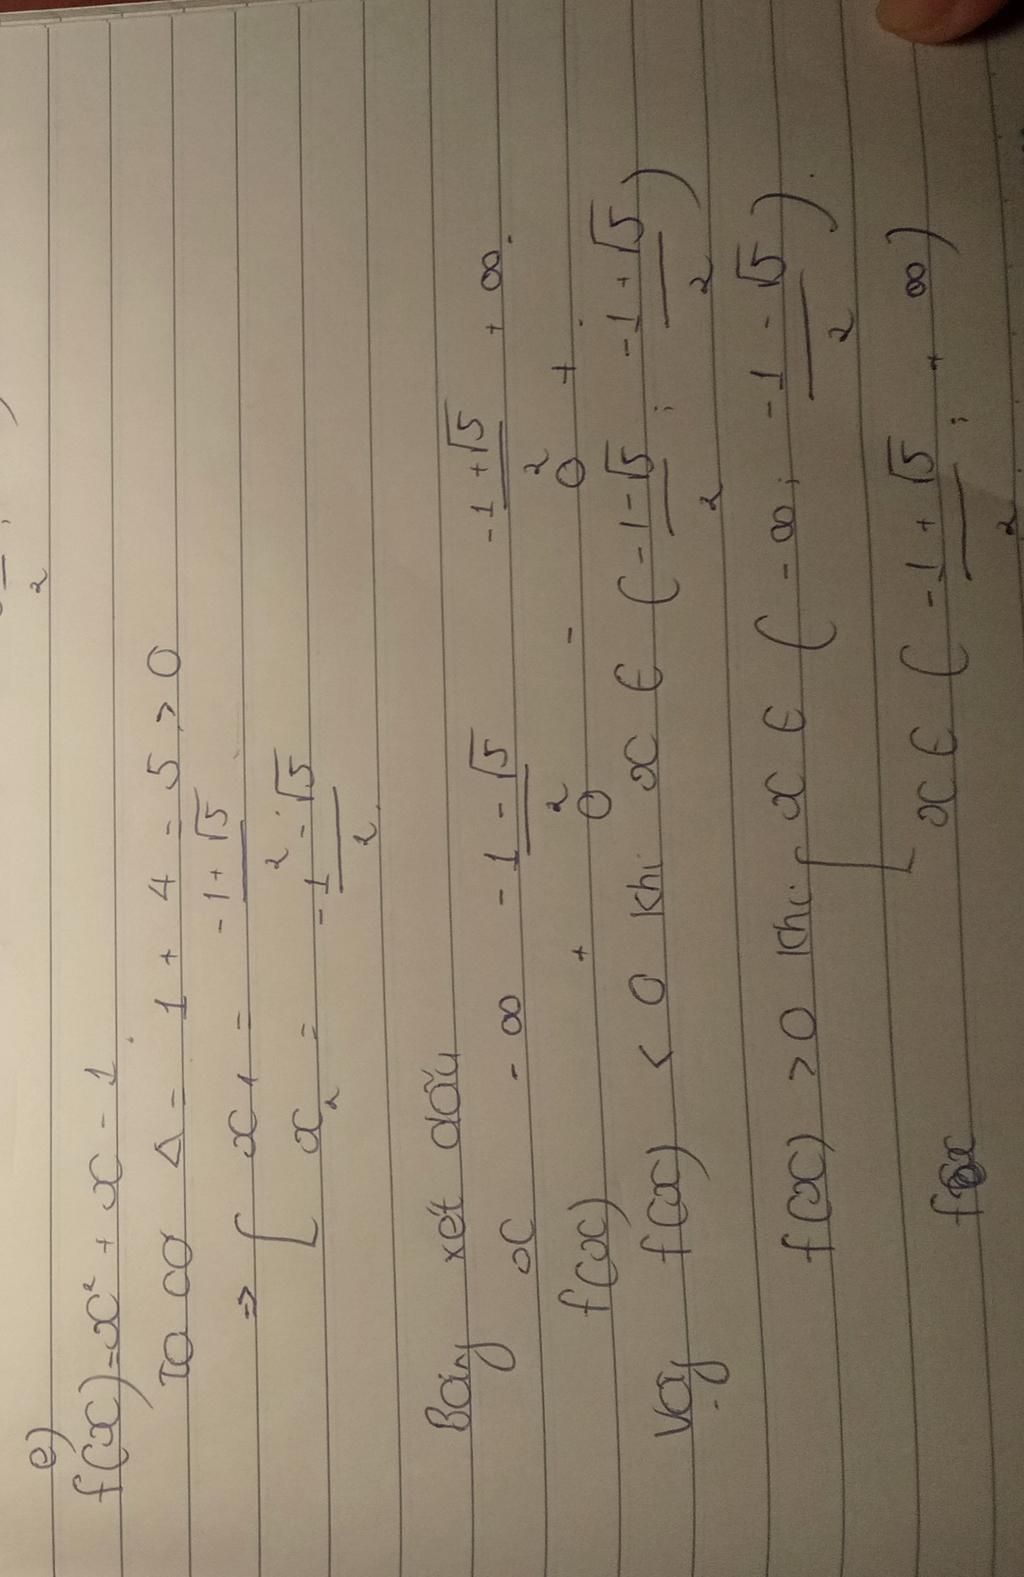 e)
f(x)=x² + x - 1
Ta có Δ = 1 + 4 = 5 > 0
⇒ [ x1 = (-1+√5)/2
x2 = (-1-√5)/2
Bảy xét dấu
x -∞ (-1-√5)/2 (-1+√5)/2 +∞
f(x) + 0 - 0 +
Vậy f(x) < 0 khi x ∈ ((-1-√5)/2 ; (-1+√5)/2)
f(x) > 0 khi [ x ∈ (-∞; (-1-√5)/2).
x ∈ ((-1+√5)/2 ; +∞)